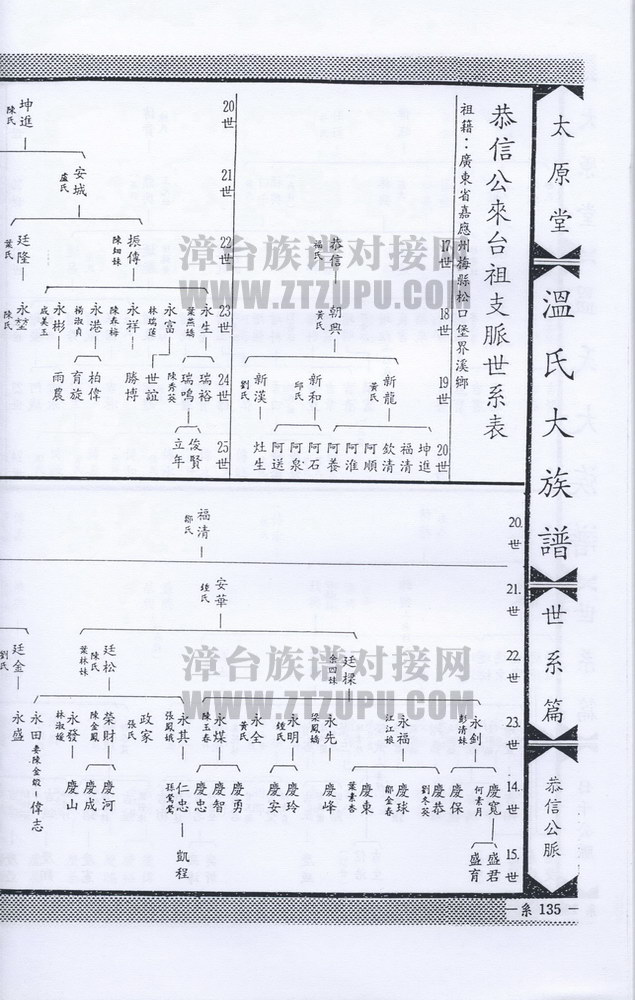 太原堂
溫氏大族譜
世系篇
恭信公脈
系 135
恭信公來台祖支脈世系表
祖籍：廣東省嘉應州梅縣松口堡界溪鄉
17世
恭信
福氏
18世
朝興
黃氏
19世
新龍
黃氏
新和
邱氏
新漢
劉氏
20世
坤進
福清
欽清
阿順
阿淮
阿養
阿石
阿泉
阿送
灶生
20世
坤進
陳氏
21世
安城
盧氏
22世
振傳
陳如妹
廷隆
葉氏
23世
永生
葉燕嬌
永富
林瑞蓮
永祥
陳森梅
永港
楊淑貞
永彬
成美玉
陳氏
24世
瑞裕
瑞鳴
陳秀英
世誼
勝博
柏偉
育旋
雨農
25世
俊賢
立年
20.世
福清
鄒氏
21.世
安華
鍾氏
22.世
廷櫟
余四妹
廷松
陳氏
葉林妹
廷金
劉氏
23.世
永釗
彭清妹
永福
江江娘
永先
梁鳳嬌
永明
鍾氏
永全
黃氏
永煤
陳玉春
永其
張鳳娥
政家
張氏
榮財
陳金鳳
永發
林淑媛
永田
妻陳金鍛
永盛
14.世
慶寬
何素月
慶保
慶恭
劉冬英
慶球
鄒金春
慶東
葉素香
慶峰
慶玲
慶安
慶勇
慶智
慶忠
仁忠
孫鶯鶯
慶河
慶成
慶山
偉志
15.世
盛君
盛育
凱程
漳台族谱对接网
WWW.ZTZUPU.COM
漳台族谱对接网
WWW.ZTZUPU.COM